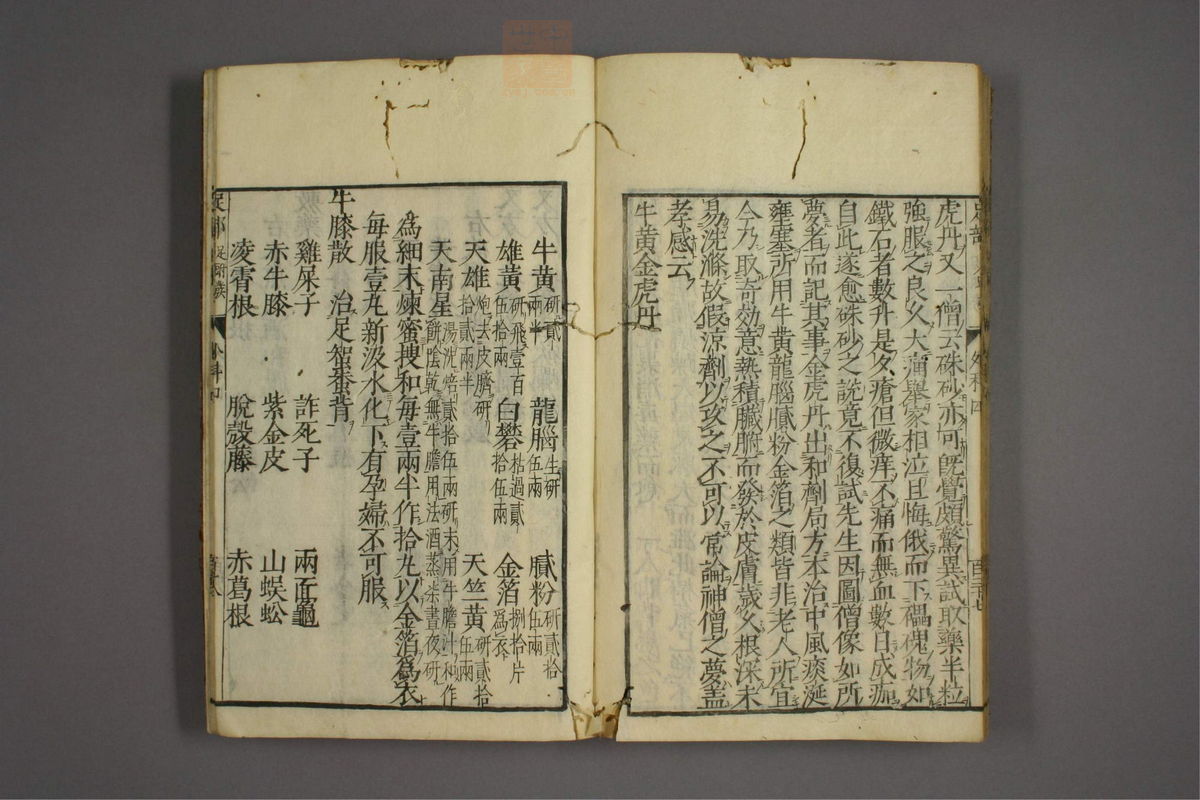 虎丹又一僧云硃砂亦可旣覺頗驚異試取藥半粒
強服之良久大痛舉家相泣且悔俄而下礧磈物如
鐵石者數升是夕瘡但微痒不痛而無血數日成痂
自此遂愈硃砂之說竟不復試先生因圖僧像如所
夢者而記其事金虎丹出和劑局方本治中風痰涎
壅塞所用牛黃龍腦膩粉金箔之類皆非老人所宜
今乃取奇効意熱積臟腑而發於皮膚歲久根深未
易洗滌故假涼劑以攻之不可以常論神僧之夢盖
孝感云
牛黃金虎丹
牛黃研貳兩半 龍腦生研伍兩 膩粉研貳拾伍兩
雄黃研飛壹百伍拾兩 白礬枯過貳拾伍兩 金箔捌拾片爲衣
天雄炮去皮臍研拾貳兩半 天竺黃研貳拾伍兩
天南星湯洗焙貳拾伍兩研末用牛膽汁和作餅陰乾無牛膽用法酒蒸柒晝夜研
爲細末煉蜜搜和每壹兩半作拾丸以金箔爲衣
每服壹丸新汲水化下有孕婦不可服
牛膝散 治足蜘蛛背
雞屎子 詐死子 兩面龜
赤牛膝 紫金皮 山蜈蚣
凌霄根 脫殼藤 赤葛根